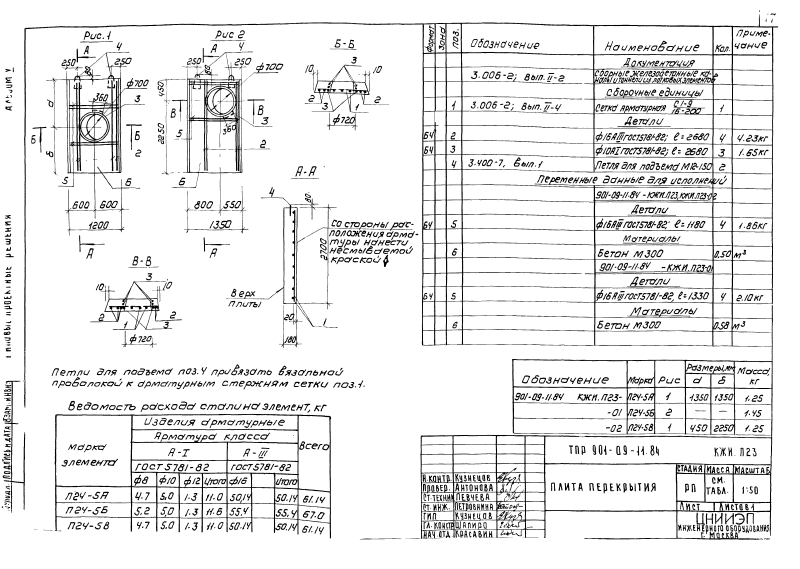 Рис. 1
Рис 2
Б-Б
А
4
А
4
250
250
250
250
ф700
ф700
10
3
10
2
2
1
ф720
360
3
а
б
Б
Б
2
5
Б
450
2250
В
В
5
360
3
2
600
600
1200
800
550
1350
А
А
А-А
4
80
2700
со стороны рас-
положения арма-
туры нанести
несмываемой
краской
верх
плиты
20
180
1
В-В
3
10
10
2
1
3
2
ф720
Петли для подъема поз. 4 привязать вязальной
проволокой к арматурным стержням сетки поз. 1.
Ведомость расхода стали на элемент, кг
Марка элемента
Изделия арматурные
Всего
Арматура класса
А-I
А-III
ГОСТ 5781-82
ГОСТ 5781-82
ф8 ф10 ф12 Итого ф16 Итого
П24-5А 4.7 5,0 1.3 11.0 50,14 50,14 61.14
П24-5Б 5.2 5,0 1.3 11.6 55,4 55,4 67.0
П24-5В 4.7 5.0 1.3 11.0 50.14 50,14 61.14
Формат Зона Поз. Обозначение Наименование Кол. Приме-чание
Документация
3.006-2; вып. II-2 Сборные железобетонные ка-налы и тоннели из лотковых элементов
Сборочные единицы
1 3.006-2; вып. II-4 Сетка арматурная 1
Детали
БЧ 2 ф16АIII ГОСТ5781-82; l=2680 4 4.23кг
БЧ 3 ф10АI ГОСТ5781-82; l=2680 3 1.65кг
4 3.400-7, вып. 1 Петля для подъема М12-150 2
Переменные данные для исполнений
901-09-11.84 -КЖИ.П23, КЖИ.П23-02
Детали
БЧ 5 ф16АIII ГОСТ5781-82; l=1180 4 1.86кг
Материалы
6 Бетон М300 0.50 м³
901-09-11.84 -КЖИ.П23-01
Детали
БЧ 5 ф16АIII ГОСТ5781-82, l=1330 4 2.10кг
Материалы
6 Бетон М300 0.58 м³
Обозначение Марка Рис Размеры, мм Масса кг
а б
901-09-11.84 КЖИ.П23- П24-5А 1 1350 1350 1.25
-01 П24-5Б 2 — — 1.45
-02 П24-5В 1 450 2250 1.25
ТПР 901-09-11.84 КЖИ. П23
ПЛИТА ПЕРЕКРЫТИЯ
СТАДИЯ МАССА МАСШТАБ
РП СМ. ТАБЛ. 1:50
Лист Листов 1
ЦНИИЭП
ИНЖЕНЕРНОГО ОБОРУДОВАНИЯ
Г. МОСКВА
Н.КОНТР. КУЗНЕЦОВ
ПРОВЕР. АНТОНОВА
СТ.ТЕХНИК ПЕВЧЕВА
СТ. ИНЖ. ПЕТРОВНИНА
ГИП КУЗНЕЦОВ
ГЛ. КОНСТР. ШАПИРО
НАЧ. ОТД. КРАСАВИН